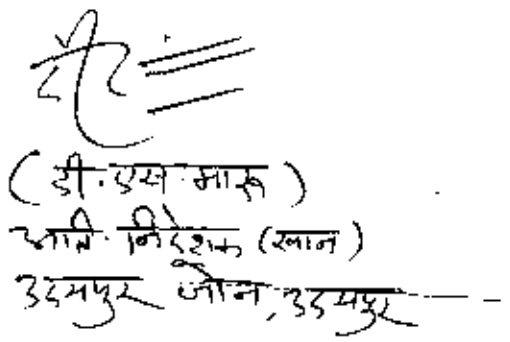 (डी.एस.मारू)
अति.निदेशक (खान)
उदयपुर जोन, उदयपुर